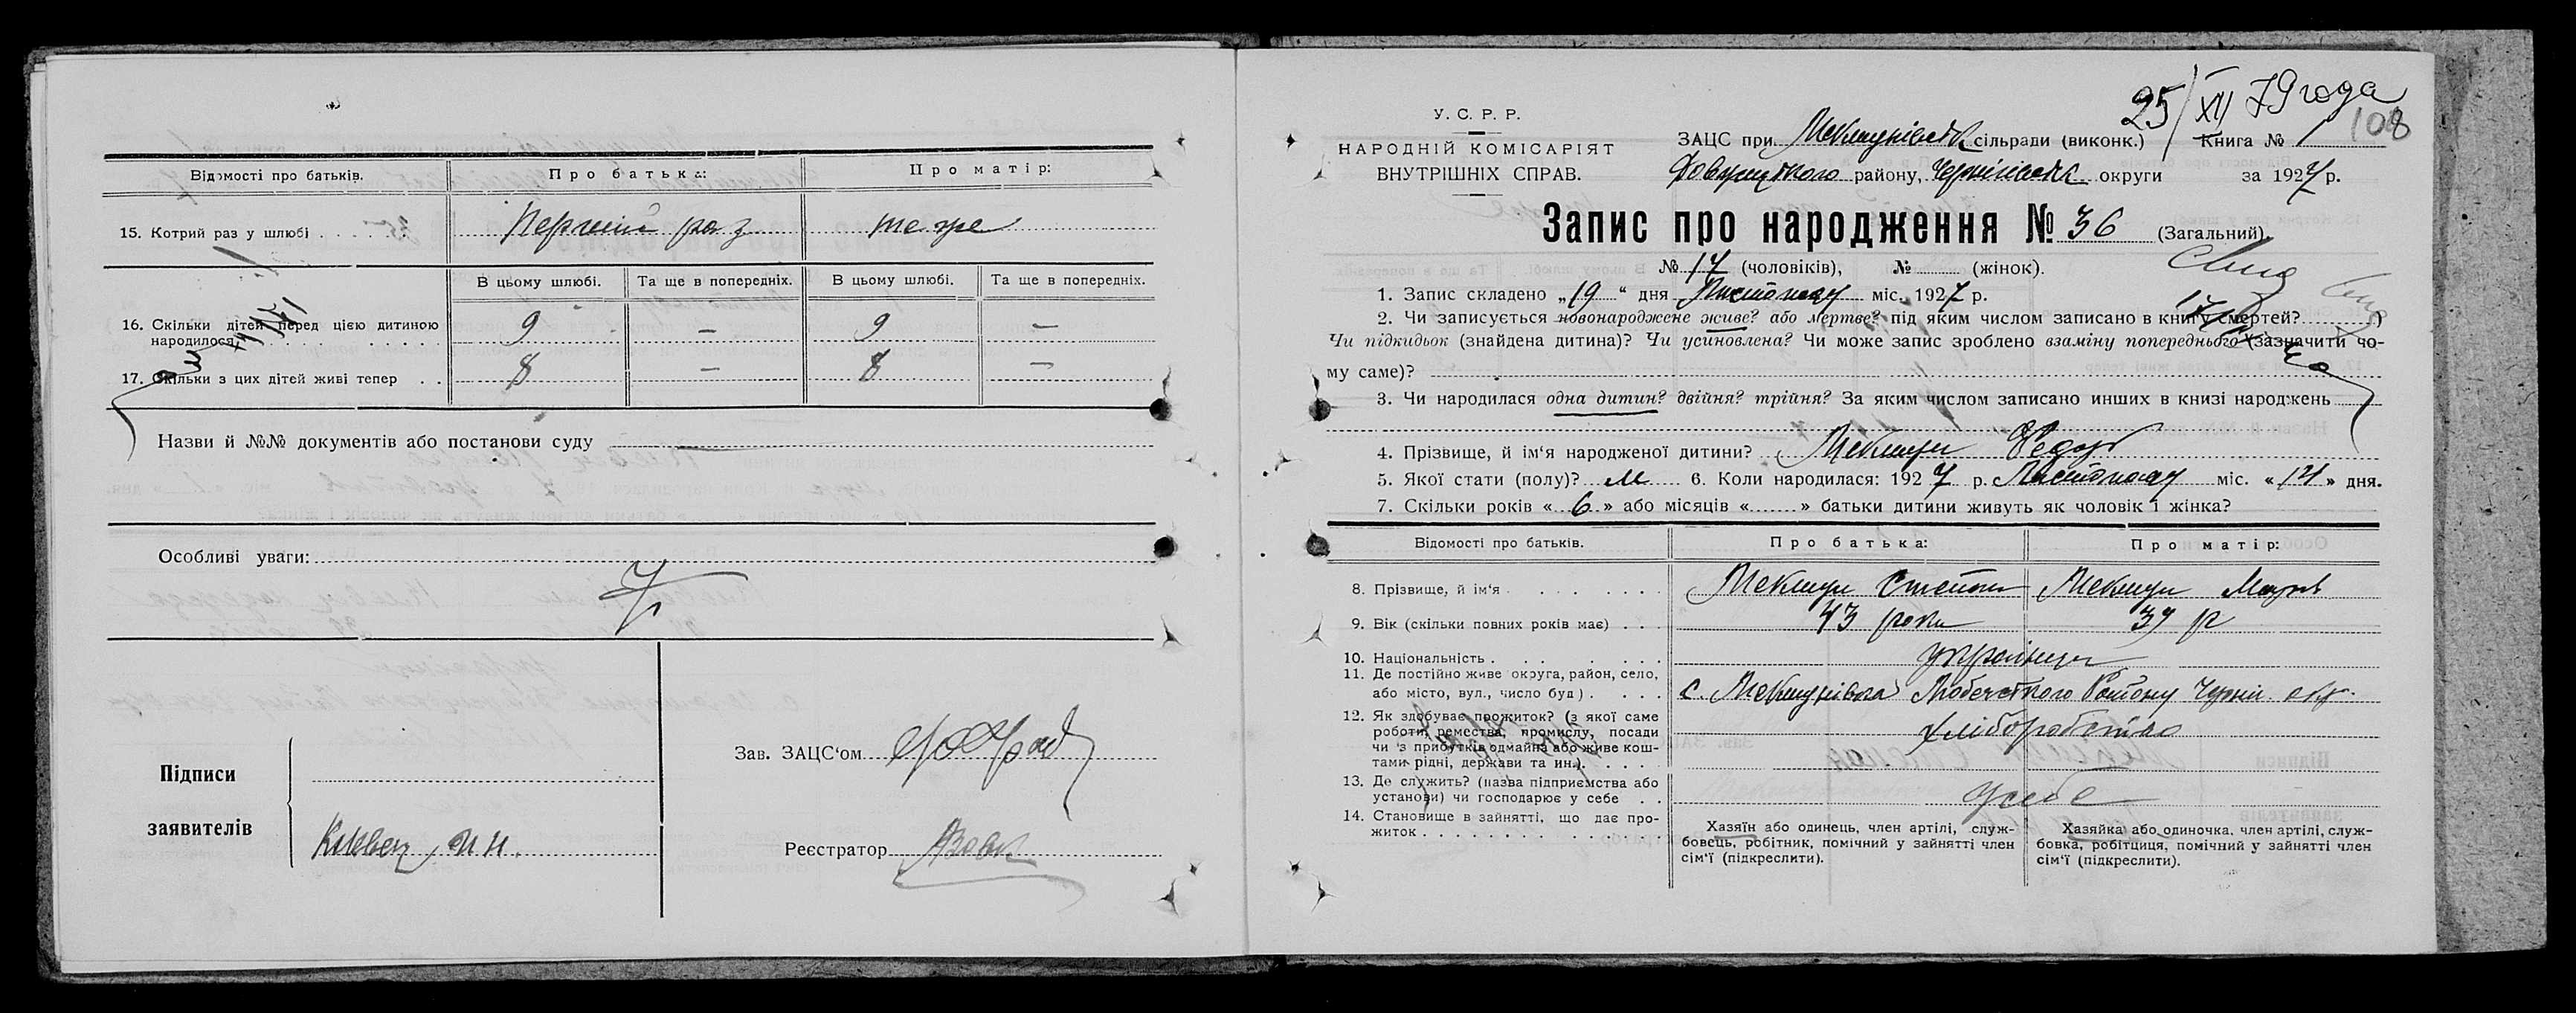 Відомості про батьків.
Про батька:
Про матір:
15. Котрий раз у шлюбі
Перший раз
теже
В цьому шлюбі.
Та ще в попередніх.
В цьому шлюбі.
Та ще в попередніх.
16. Скільки дітей перед цією дитиною
народилося
9
—
9
—
17. Скільки з цих дітей живі тепер
8
—
8
—
Назви й №№ документів або постанови суду
Особливі уваги:
Підписи
заявителів
Зав. ЗАЦС'ом
Реєстратор
25/XII 79 года
108
У. С. Р. Р.
НАРОДНІЙ КОМІСАРІЯТ
ВНУТРІШНІХ СПРАВ.
ЗАЦС при сільради (виконк.) Книга № 1
району, Чернігівськ округи за 1927 р.
Запис про народження № 36 (Загальний).
№ 17 (чоловіків), № (жінок).
1. Запис складено „19" дня Листопаду міс. 1927 р.
2. Чи записується новонароджене живе? або мертве? під яким числом записано в книгу смертей? )
Чи підкидьок (знайдена дитина)? Чи усиновлена? Чи може запис зроблено взаміну попереднього (зазначити чо-
му саме)?
3. Чи народилася одна дитин? двійня? трійня? За яким числом записано инших в книзі народжень
4. Прізвище, й ім'я народженої дитини? Федор
5. Якої стати (полу)? М 6. Коли народилася: 1927 р. Листопаду міс. «14» дня.
7. Скільки років «6» або місяців « » батьки дитини живуть як чоловік і жінка?
Відомості про батьків.
Про батька:
Про матір:
8. Прізвище, й ім'я
Степан
9. Вік (скільки повних років має)
43 роки
39 р
10. Національність
українци
11. Де постійно живе округа, район, село,
або місто, вул., число буд)
с. Любечского Району Черніг. окр.
12. Як здобуває прожиток? (з якої саме
роботи, ремества, промислу, посади
чи з прибутків одмайна або живе кош-
тами рідні, держави та ин.)
хліборобство
13. Де служить? (назва підприємства або
установи) чи господарює у себе
у себе
14. Становище в зайнятті, що дає про-
житок
Хазяїн або одинець, член артілі, служ-
бовець, робітник, помічний у зайнятті член
сім'ї (підкреслити).
Хазяйка або одиночка, член артілі, служ-
бовка, робітниця, помічний у зайнятті член
сім'ї (підкреслити).